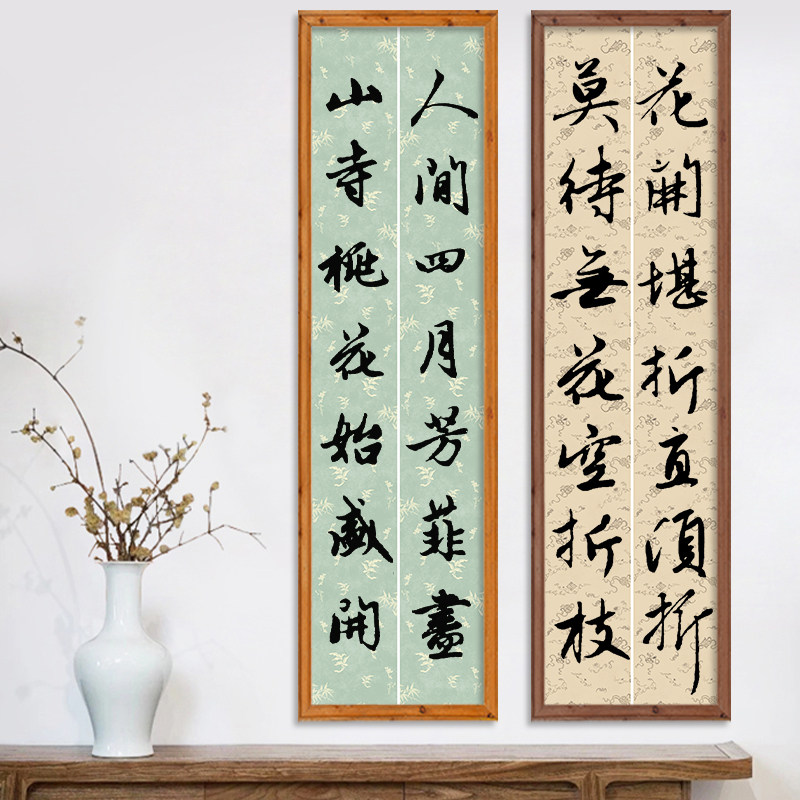 花開堪折直須折
莫待無花空折枝
人間四月芳菲盡
山寺桃花始盛開